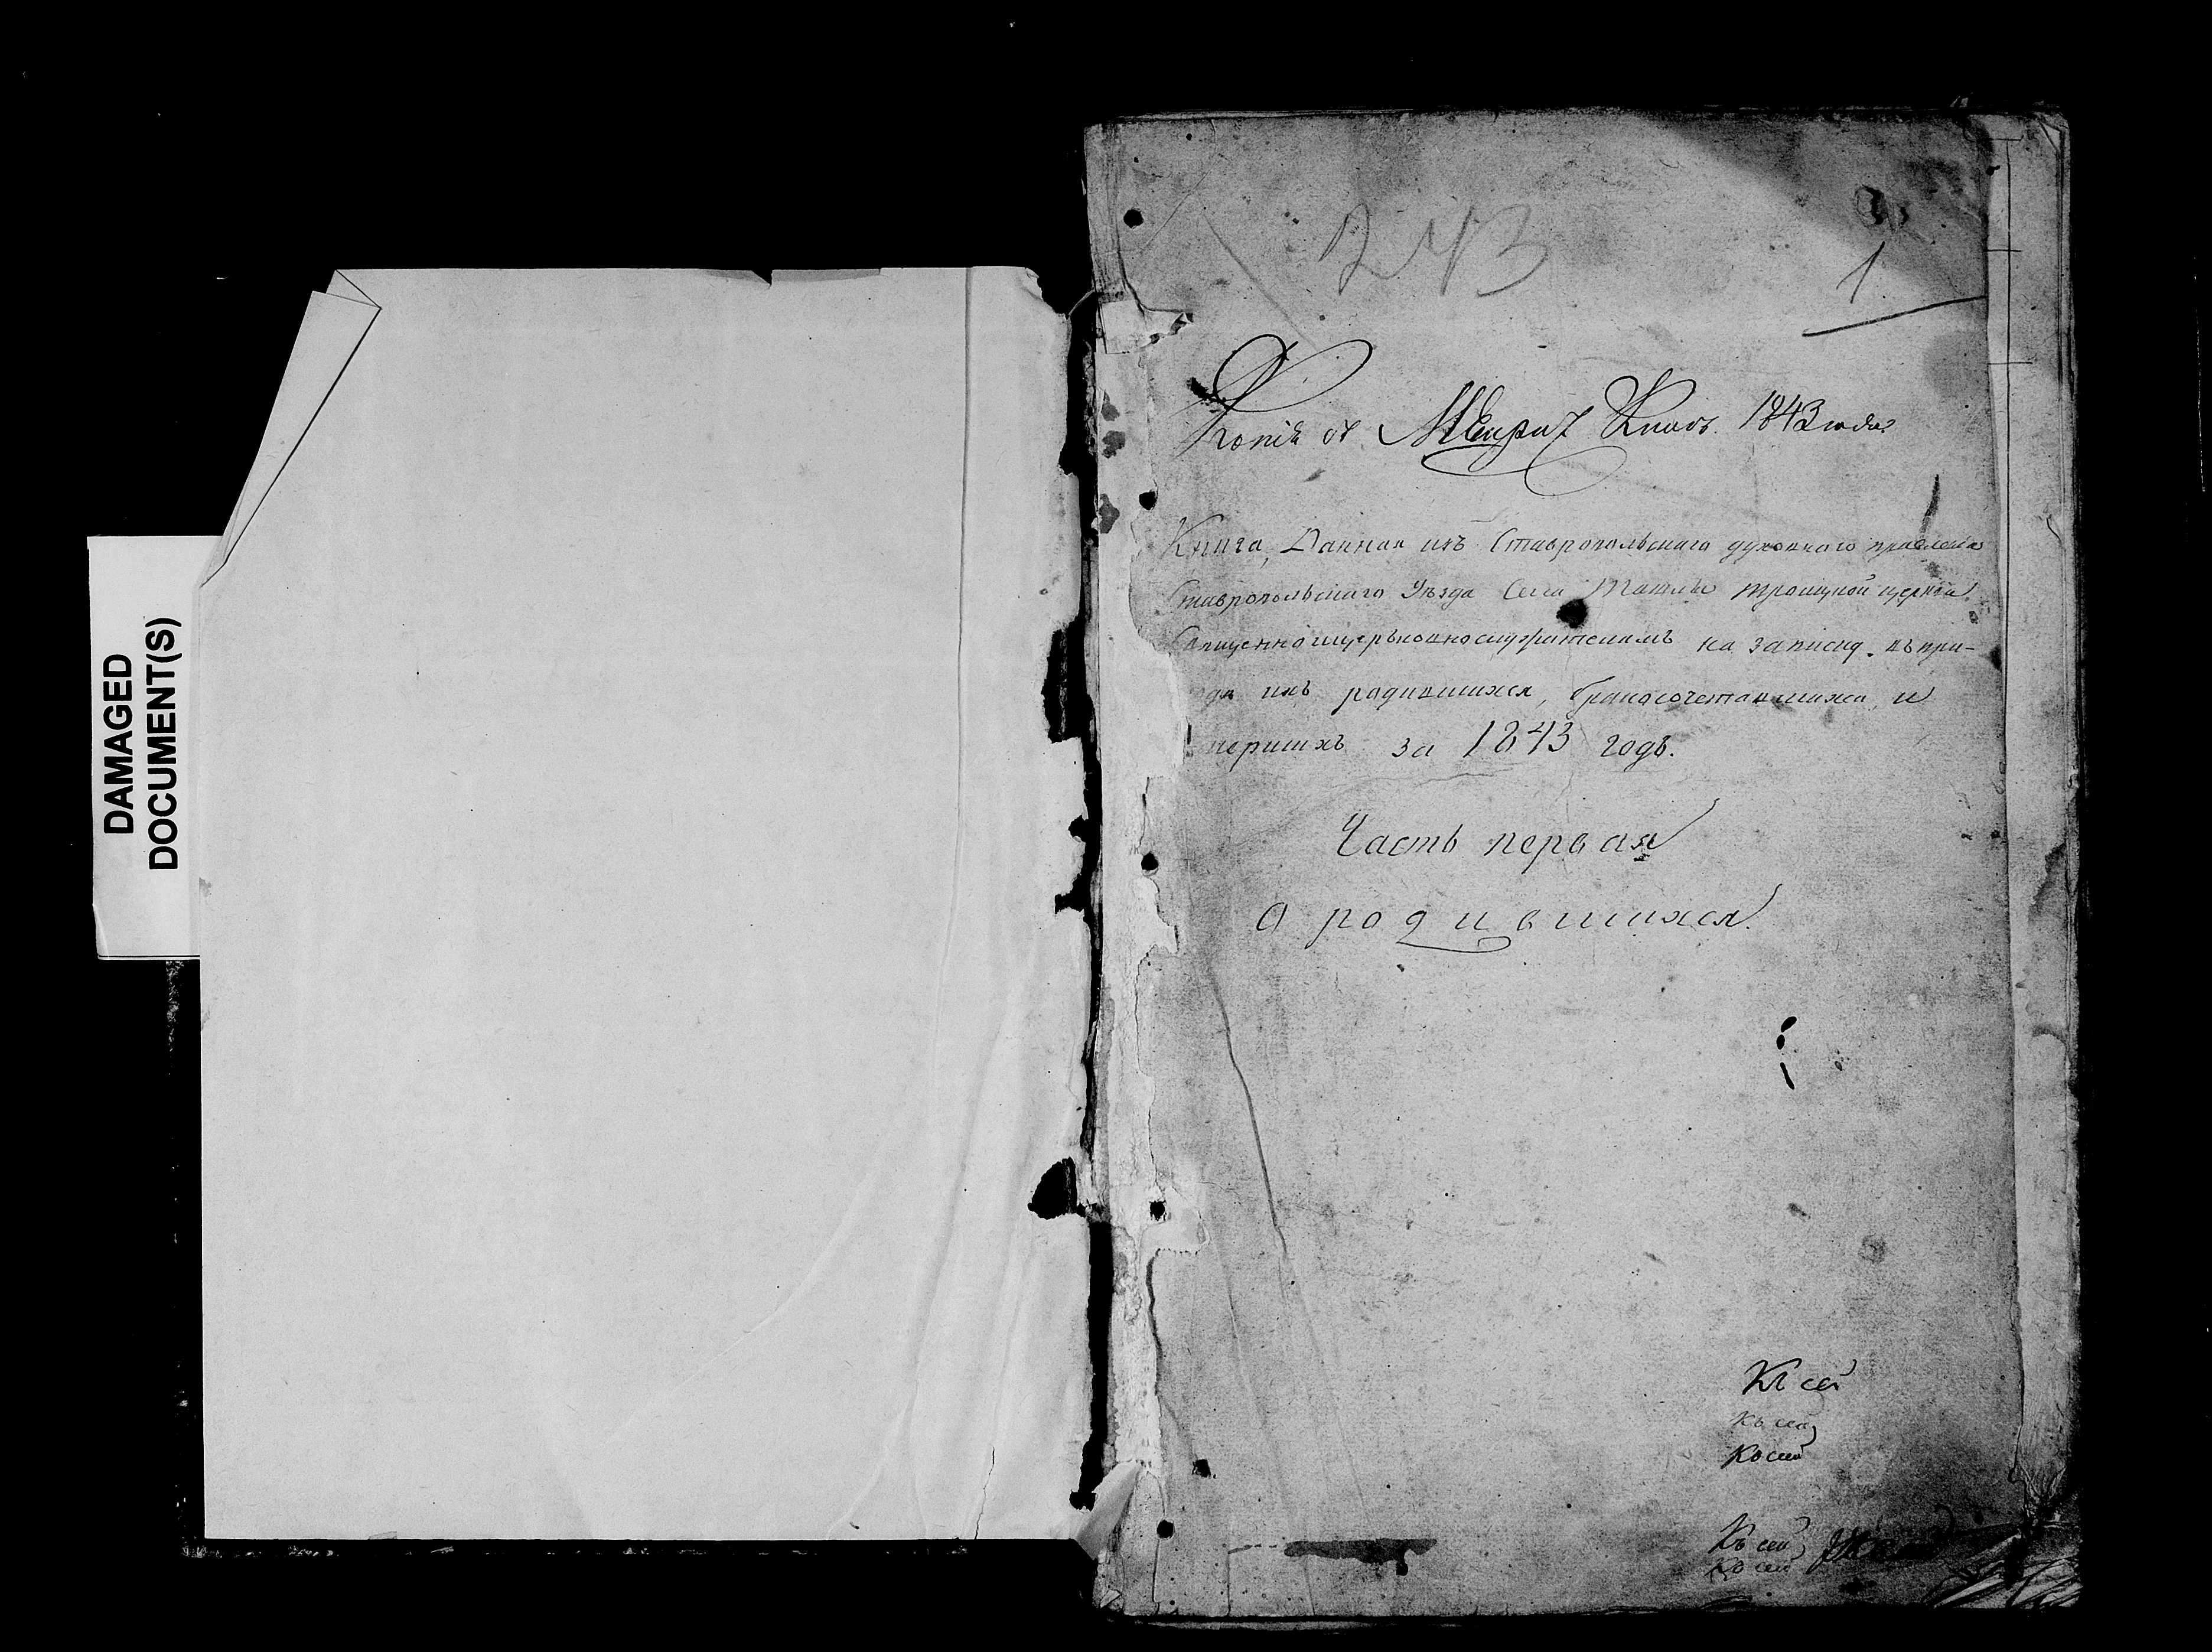 DAMAGED
DOCUMENT(S)
243
1
Копія съ Метрич Книгъ. 1843 года
Книга, Данная изъ Ставропольскаго духовнаго правленія
Ставропольскаго Уѣзда Села Ташлы троицкой церкви
Священноицерьковнослужителямъ на записку. въ при-
да ихъ родившихся, бракосочетавшихся, и
мершихъ за 1843 годъ.
Часть первая
О родившихся.
Къ сей
Къ сей
Къ сей
Къ сей
Къ сей